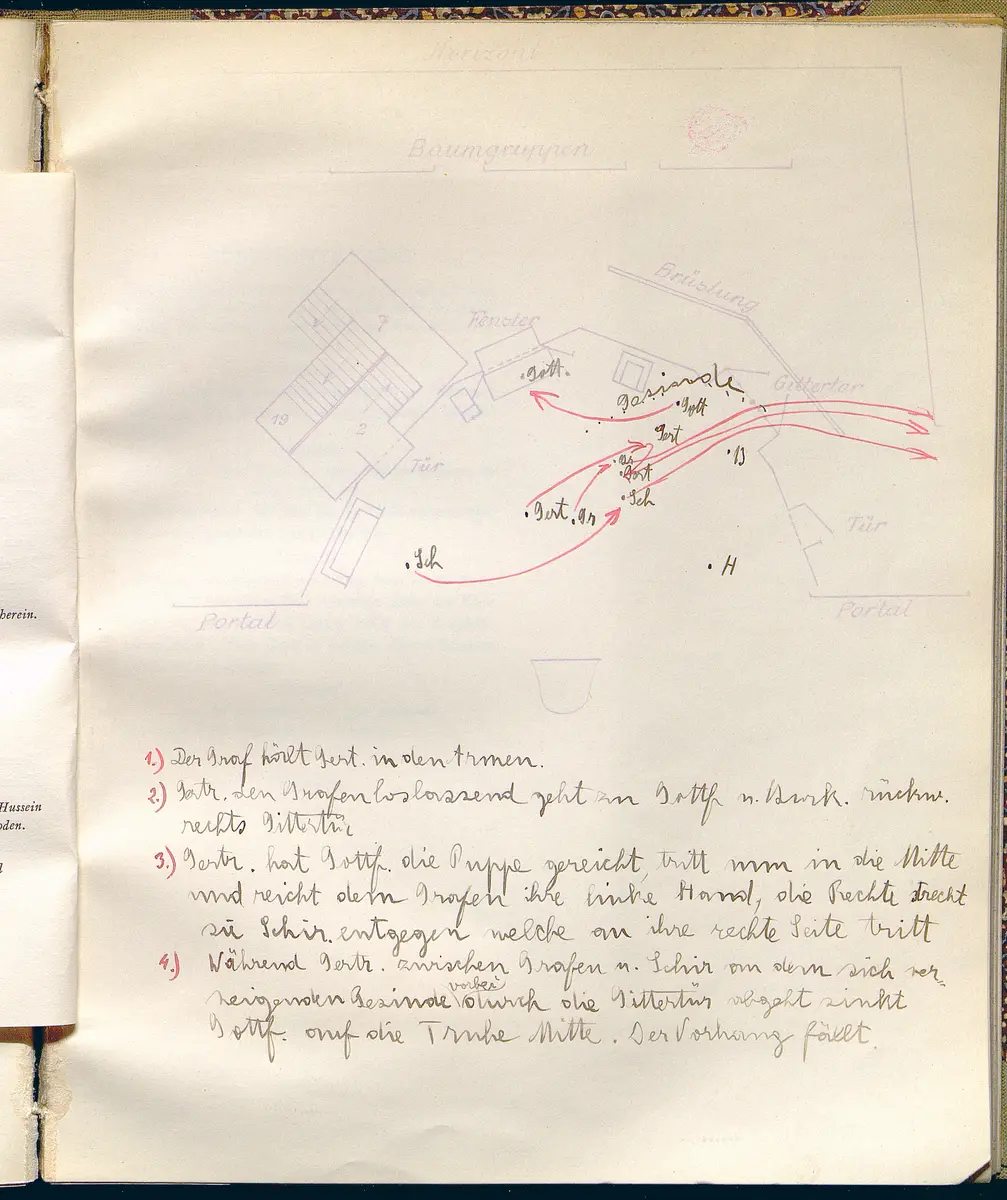 Horizont
Baumgruppen
Brüstung
7
Fenster
Gott.
Gesinde
Gittertor
Gott
19
2
Gert
Gr
B
Tür
Gert
Sch
Gert Gr
Tür
Sch
H
Portal
Portal
herein.
1.) Der Graf hält Gert. in den Armen.
2.) Gertr. den Grafen loslassend geht zu Gottf u. Burk. rückw.
rechts Gittertür
Hussein
oden.
3.) Gertr. hat Gottf. die Puppe gereicht, tritt nun in die Mitte
und reicht dem Grafen ihre linke Hand, die Rechte streckt
sie Schir. entgegen welche an ihre rechte Seite tritt
4.) Während Gertr. zwischen Grafen u. Schir an dem sich ver-
neigenden Gesinde vorbei durch die Gittertür abgeht sinkt
Gottf. auf die Truhe Mitte. Der Vorhang fällt.